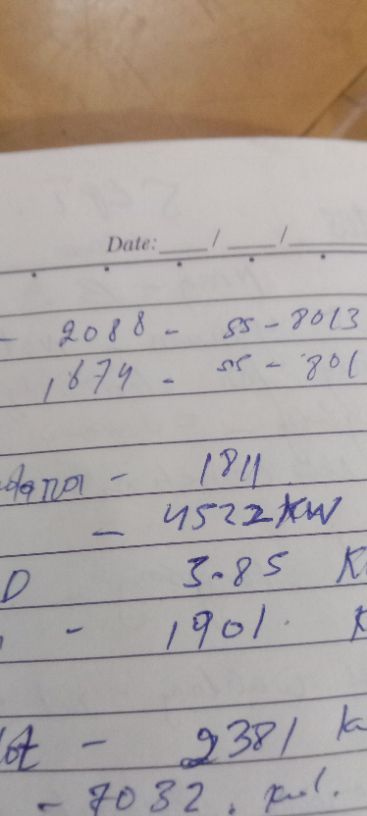 Date: ___/___/___
- 2088 - 55-8013
1674 - 55 - 801
- 1811
- 4522 KW
D 3.85 K
- 1901.
- 2381 k
- 7032.